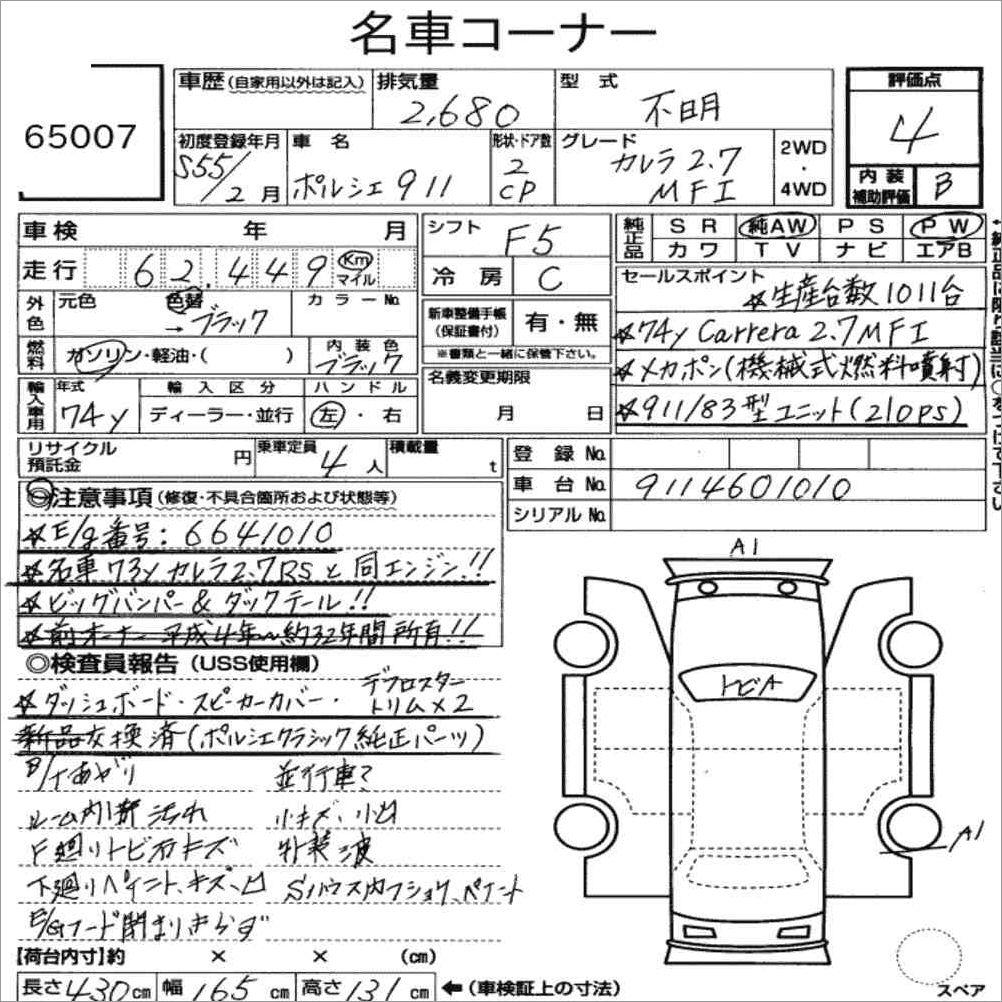 名車コーナー
65007
車歴(自家用以外は記入)
排気量 2,680
型式 不明
評価点 4
初度登録年月 S55/2月
車名 ポルシェ911
形状・ドア数 2 CP
グレード カレラ2.7 MFI
2WD・4WD
内装補助評価 B
車検 年 月
シフト F5
純正品 SR 純AW PS PW
カワ TV ナビ エアB
走行 62,449 Km マイル
冷房 C
セールスポイント ☆生産台数1011台
外色 元色 色替 →ブラック カラーNo.
新車整備手帳(保証書付) 有・無
※書類と一緒に保管下さい。
☆74y Carrera 2.7 MFI
燃料 ガソリン・軽油・( ) 内装色 ブラック
☆メカポン(機械式燃料噴射)
輸入車用 年式 74y 輸入区分 ディーラー・並行 ハンドル 左・右
名義変更期限 月 日
☆911/83型ユニット(210PS)
リサイクル預託金 円 乗車定員 4人 積載量 t
登録No.
車台No. 9114601010
シリアルNo.
◎注意事項(修復・不具合箇所および状態等)
☆E/g番号:6641010
☆名車73yカレラ2.7RSと同エンジン!!
☆ビッグバンパー&ダックテール!!
☆前オーナー平成4年~約32年間所有!!
◎検査員報告(USS使用欄)
☆ダッシュボード・スピーカーカバー・デフロスタートリム×2
新品交換済(ポルシェクラシック純正パーツ)
並行車
ルーム内部汚れ 小キズ、小凹
F廻りトビ石キズ 外装波
下廻りペイント、キズ、凹 Sハウス内フショク、ペイント
E/Gフード閉まりきらず
A1
トビA
A1
【荷台内寸】約 × × (cm)
長さ430cm 幅165cm 高さ131cm ←(車検証上の寸法)
スペア